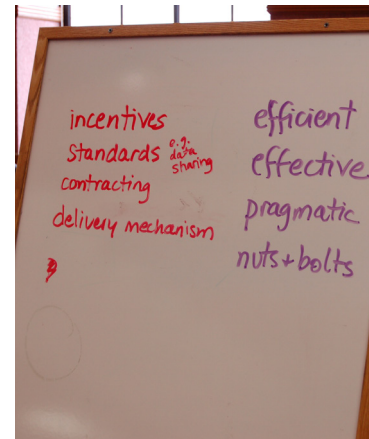 incentives
standards e.g. data sharing
contracting
delivery mechanism
efficient
effective
pragmatic
nuts + bolts